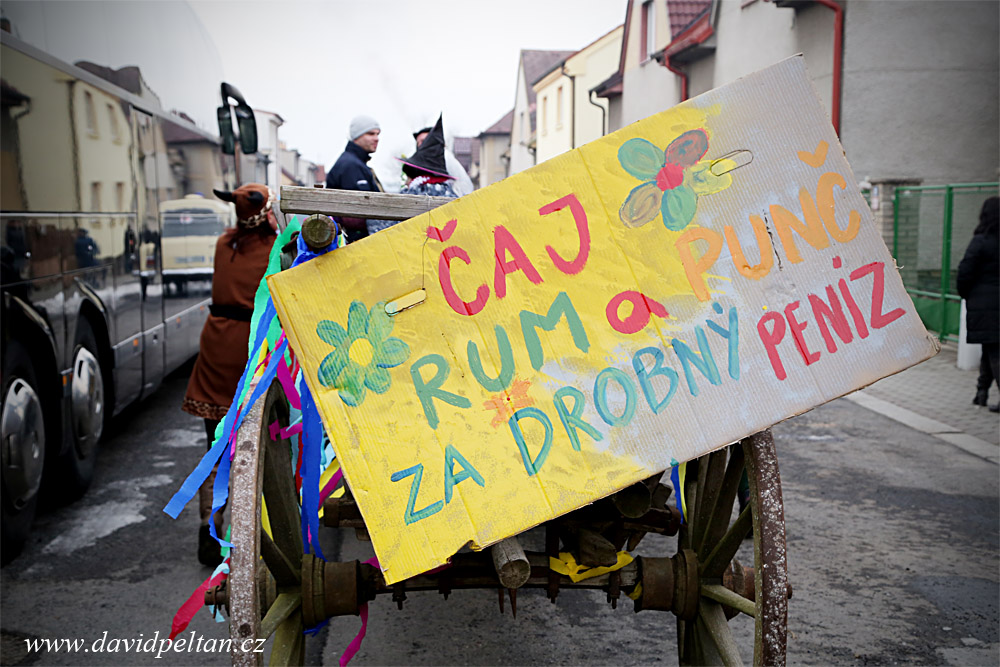 ČAJ PUNČ
RUM a
ZA DROBNÝ PENÍZ
www.davidpeltan.cz